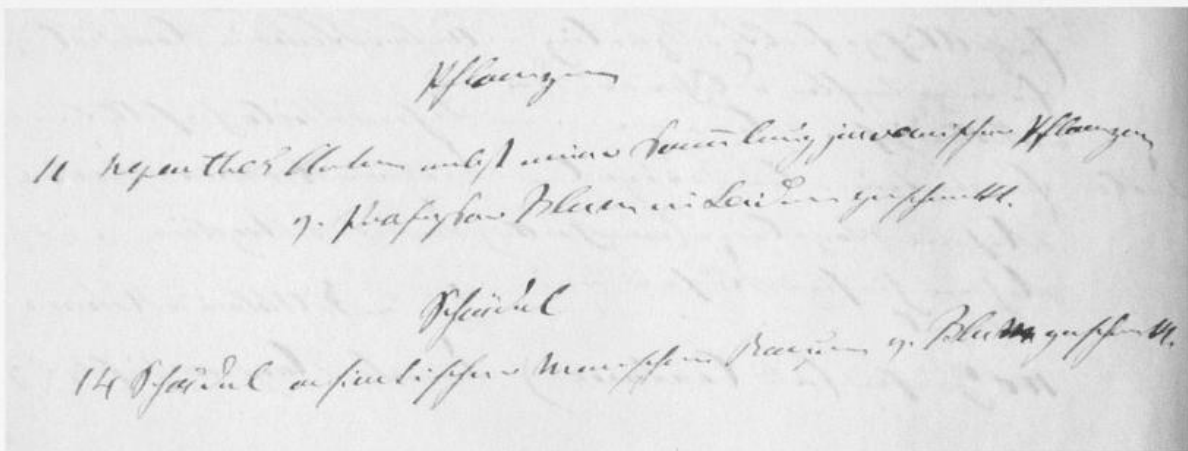 Pflanzen
11 Nepenthes Arten nebst einer Sammlung javanischer Pflanzen
v. Professor Blume in Leiden geschenkt.
Schädel
14 Schädel asiatischer Menschen Raçen v. Blume geschenkt.